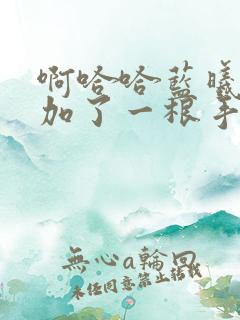 啊哈哈蓝曦
加了一根手
無心a輪回
未经同意禁止转载